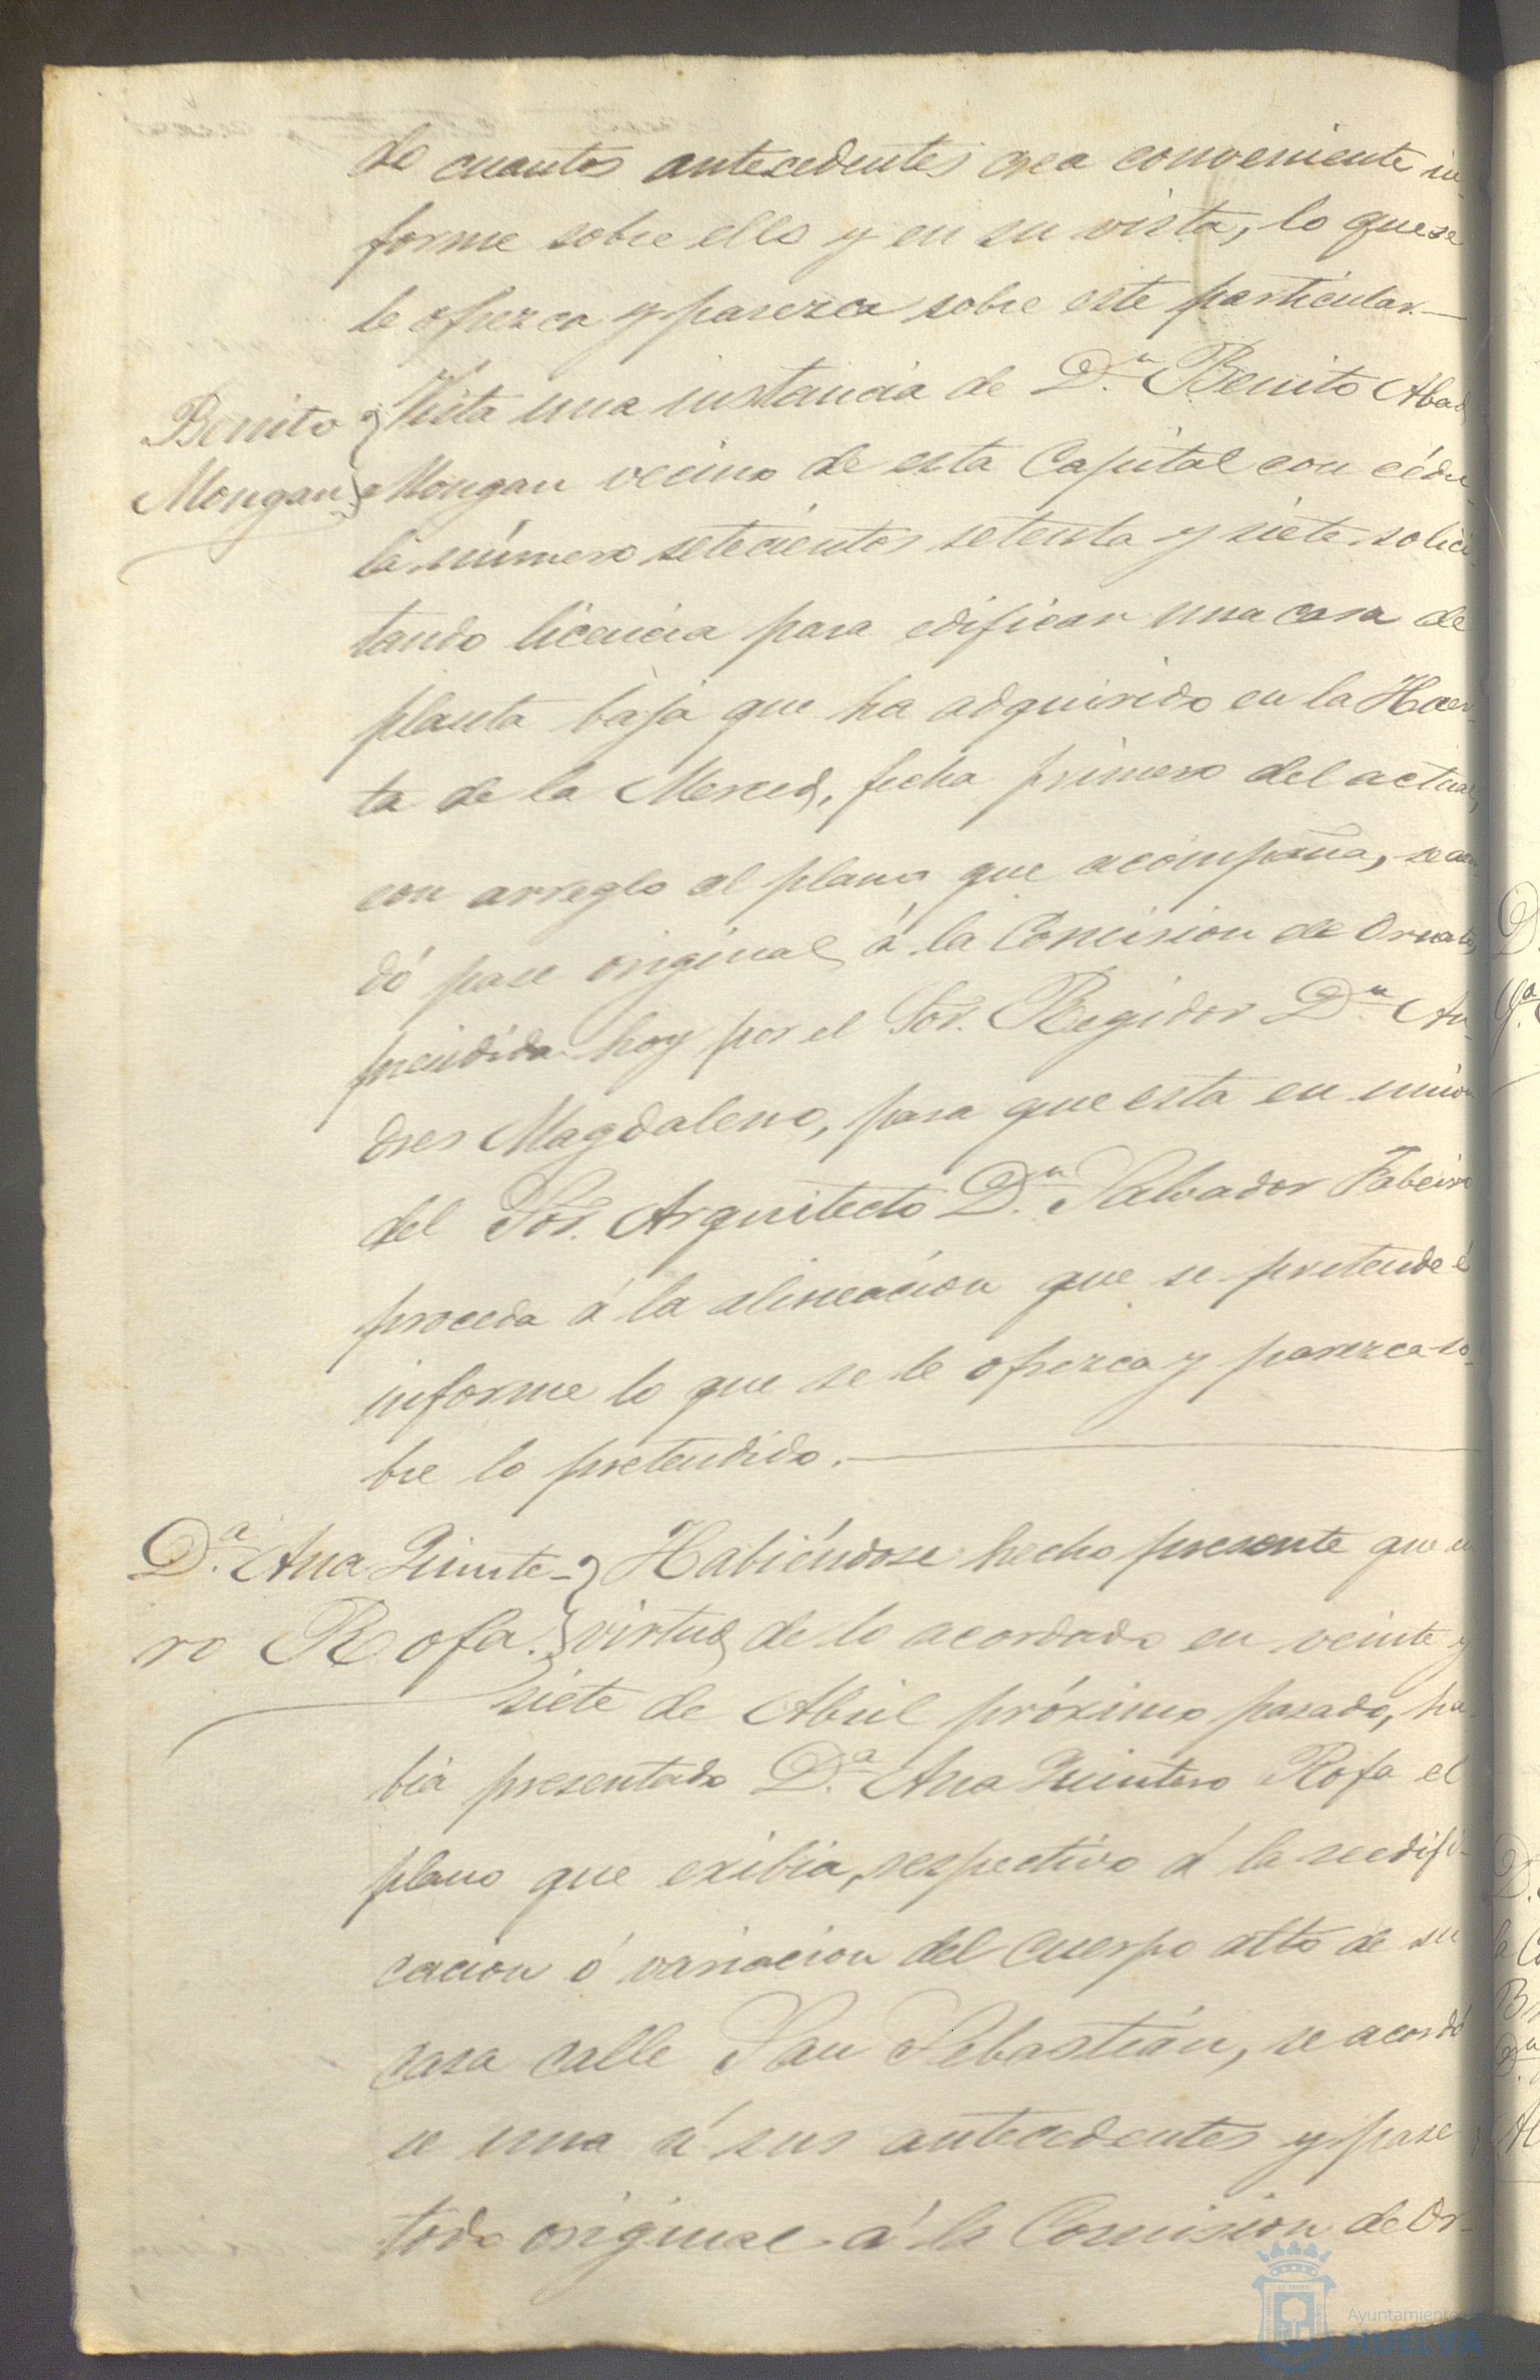 de cuantos antecedentes crea conveniente in-
forme sobre ello y en su vista, lo que se
le ofrezca y parezca sobre este particular.—
Benito Mongan
Vista una instancia de D.n Benito Abad
Mongan vecino de esta Capital con cédu-
la número setecientos setenta y siete solici-
tando licencia para edificar una casa de
planta baja que ha adquirido en la Huer-
ta de la Merced, fecha primero del actual,
con arreglo al plano que acompaña, se acor
dó pase original á la Comision de Ornato,
precidida hoy por el Sor. Regidor D.n An-
dres Magdaleno, para que esta en union
del Sor. Arquitecto D.n Salvador
proceda á la alineacion que se pretende é
informe lo que se le ofrezca y parezca so-
bre lo pretendido.—
D.a Ana Quinte-
ro Rofa.
Habiéndose hecho presente que en
virtud de lo acordado en veinte y
siete de Abril próximo pasado, ha-
bia presentado D.a Ana Quintero Rofa el
plano que exibia, respectivo á la reedifi-
cacion ó variacion del cuerpo alto de su
casa calle San Sebastián, se acordó
se una á sus antecedentes y pase
todo original á la Comision de Or-
Ayuntamiento de
HUELVA